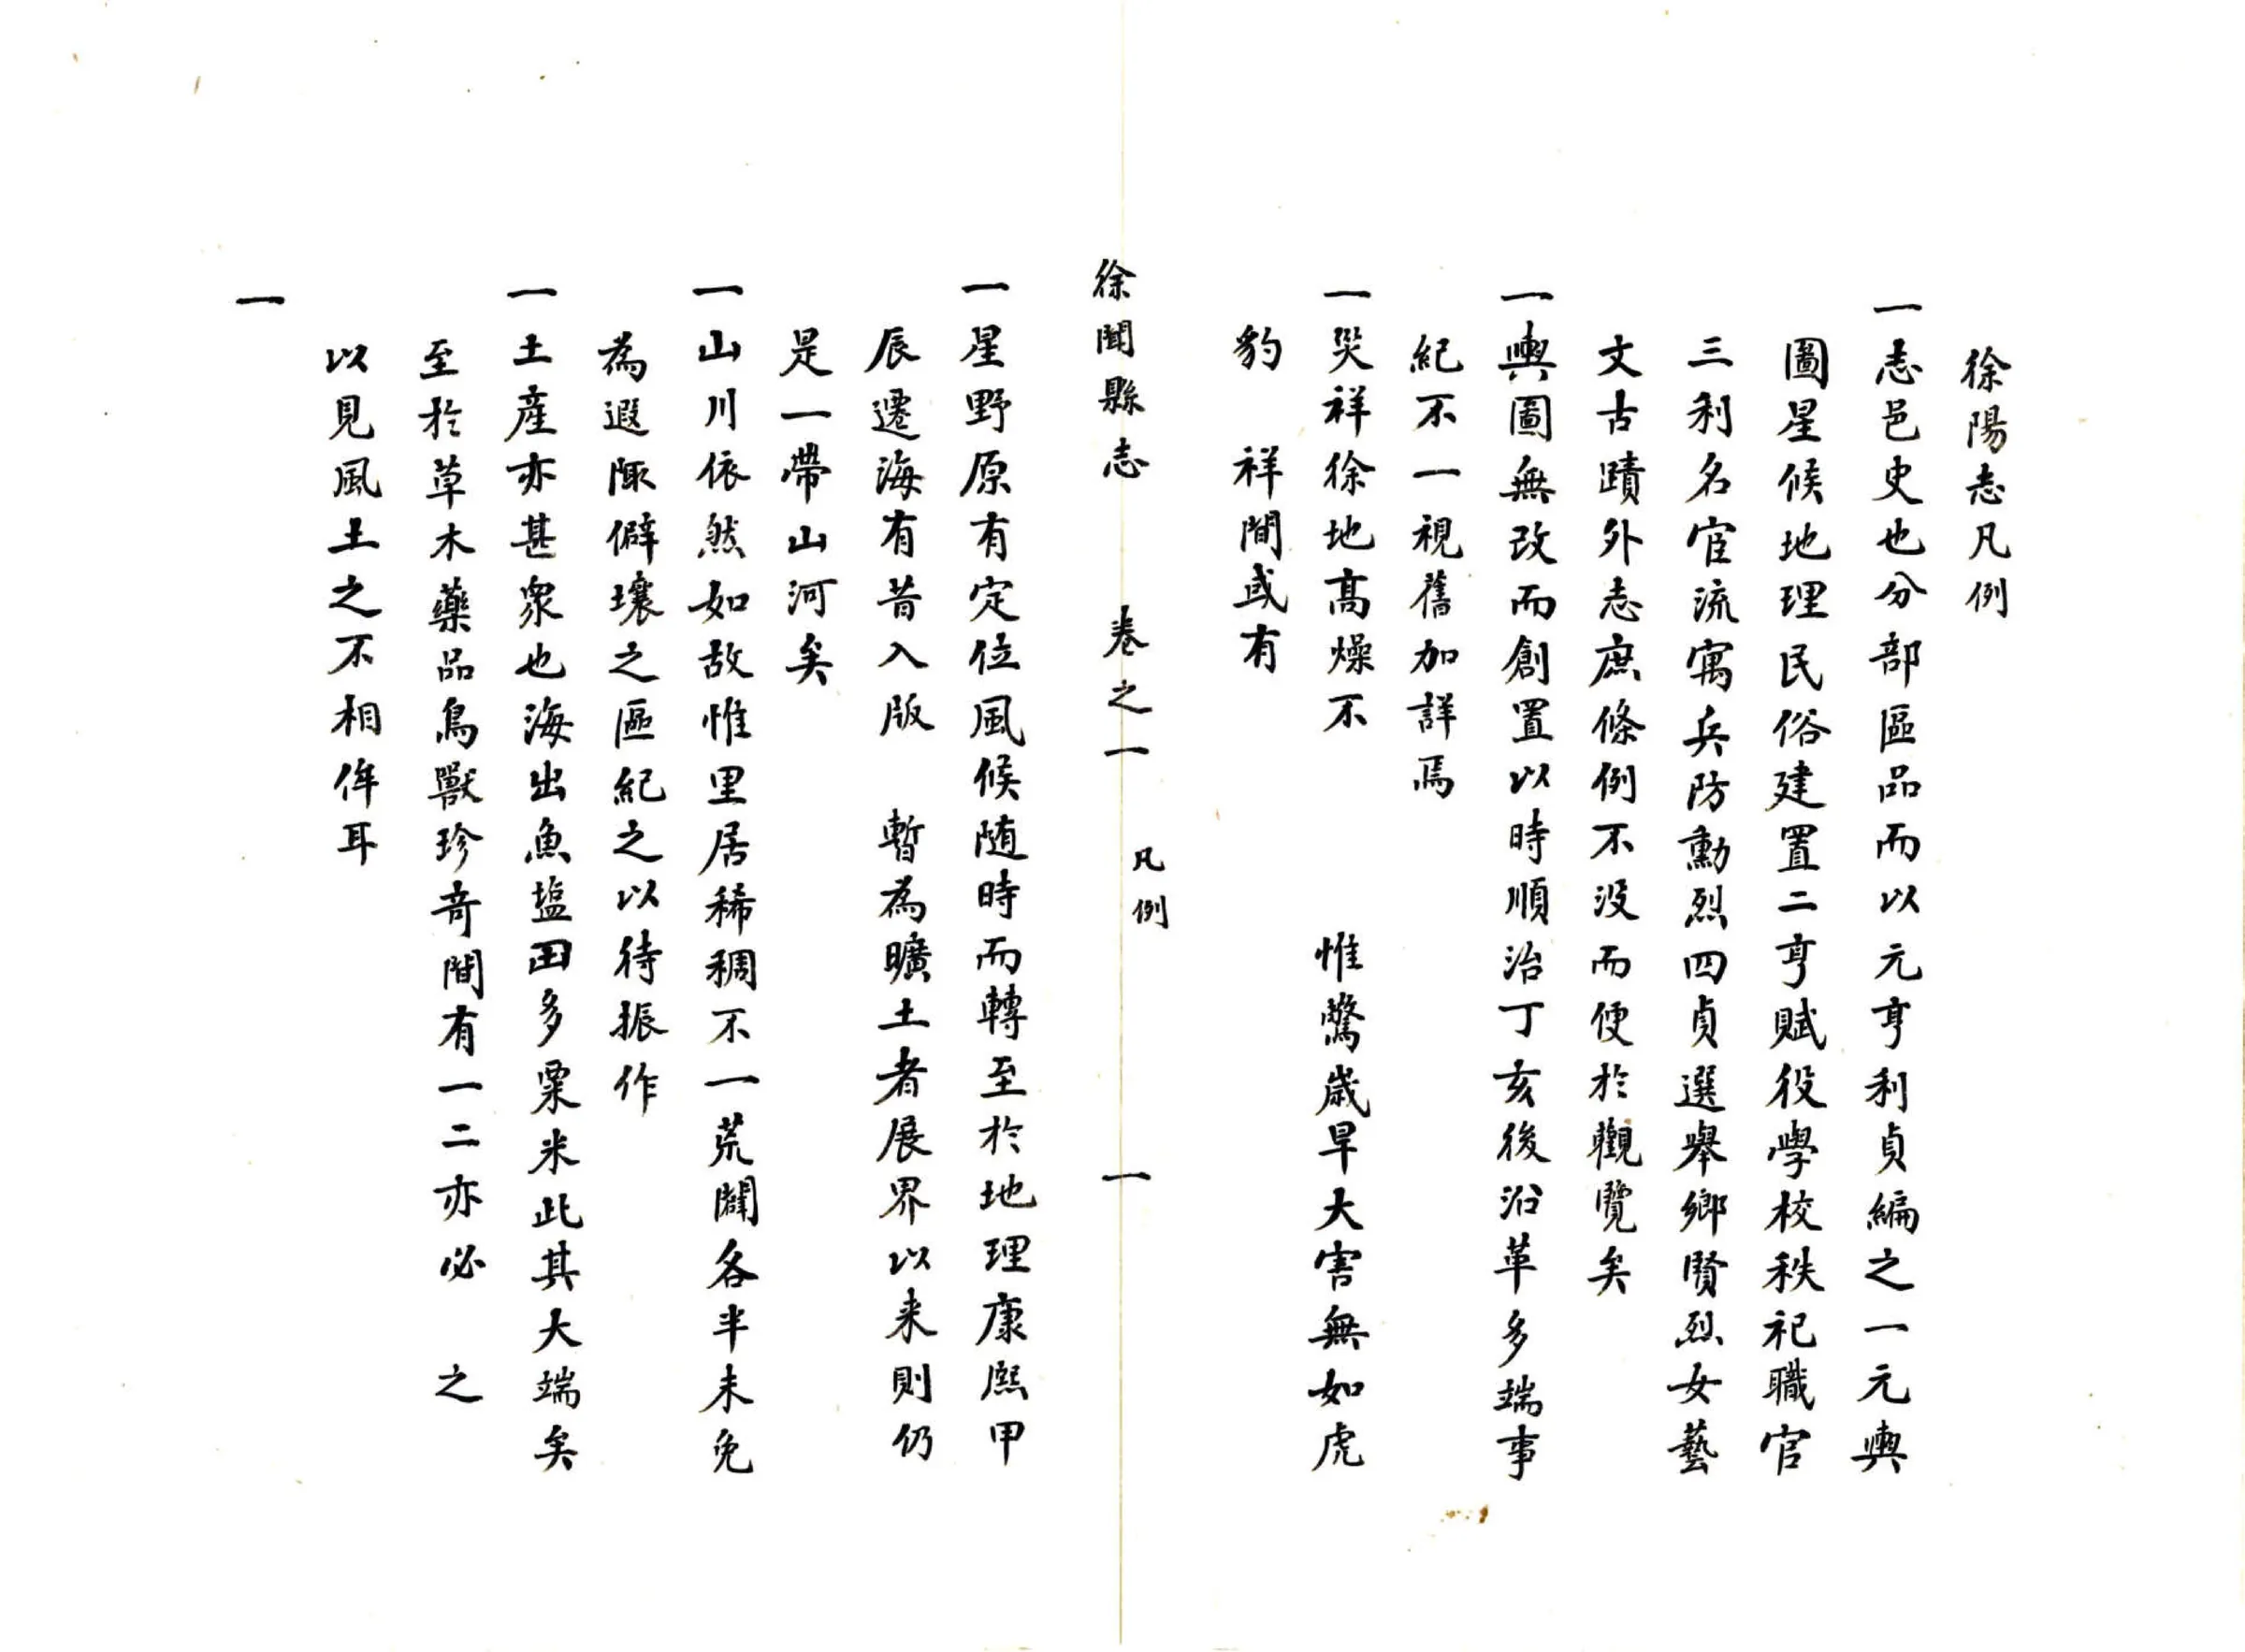 徐陽志凡例
一志邑史也分部區品而以元亨利貞編之一元輿
圖星候地理民俗建置二亨賦役學校秩祀職官
三利名宦流寓兵防勳烈四貞選舉鄉賢烈女藝
文古蹟外志庶條例不没而便於觀覽矣
一輿圖無改而創置以時順治丁亥後沿革多端事
紀不一視舊加詳焉
一災祥徐地高燥不 惟驚歲旱大害無如虎
豹 祥間或有
徐聞縣志 卷之一 凡例 一
一星野原有定位風候随時而轉至於地理康熙甲
辰遷海有昔入版 暫為曠土者展界以来則仍
是一帶山河矣
一山川依然如故惟里居稀稠不一荒闢各半未免
為遐陬僻壤之區紀之以待振作
一土產亦甚衆也海出魚塩田多粟米此其大端矣
至於草木藥品鳥獸珍奇間有一二亦必 之
以見風土之不相侔耳
一